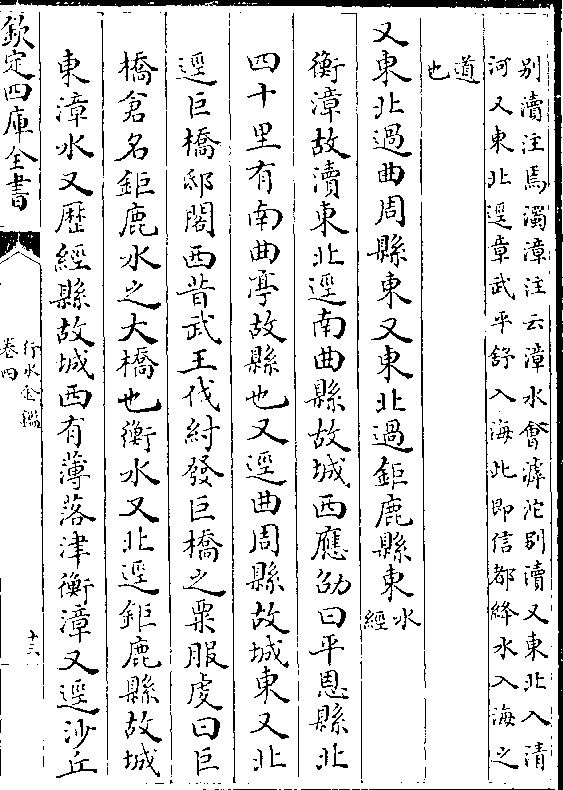 别瀆注焉濁漳注云漳水會滹沱别瀆又東北入清
河又東北逕章武平舒入海此即信都絳水入海之
道
也
又東北過曲周縣東又東北過鉅鹿縣東水
經
衡漳故瀆東北逕南曲縣故城西應劭曰平恩縣北
四十里有南曲亭故縣也又逕曲周縣故城東又北
逕巨橋邸閣西昔武王伐紂發巨橋之粟服虔曰巨
橋倉名鉅鹿水之大橋也衡水又北逕鉅鹿縣故城
東漳水又歷經縣故城西有薄落津衡漳又逕沙丘
欽定四庫全書
行水金鑑
卷四
十六